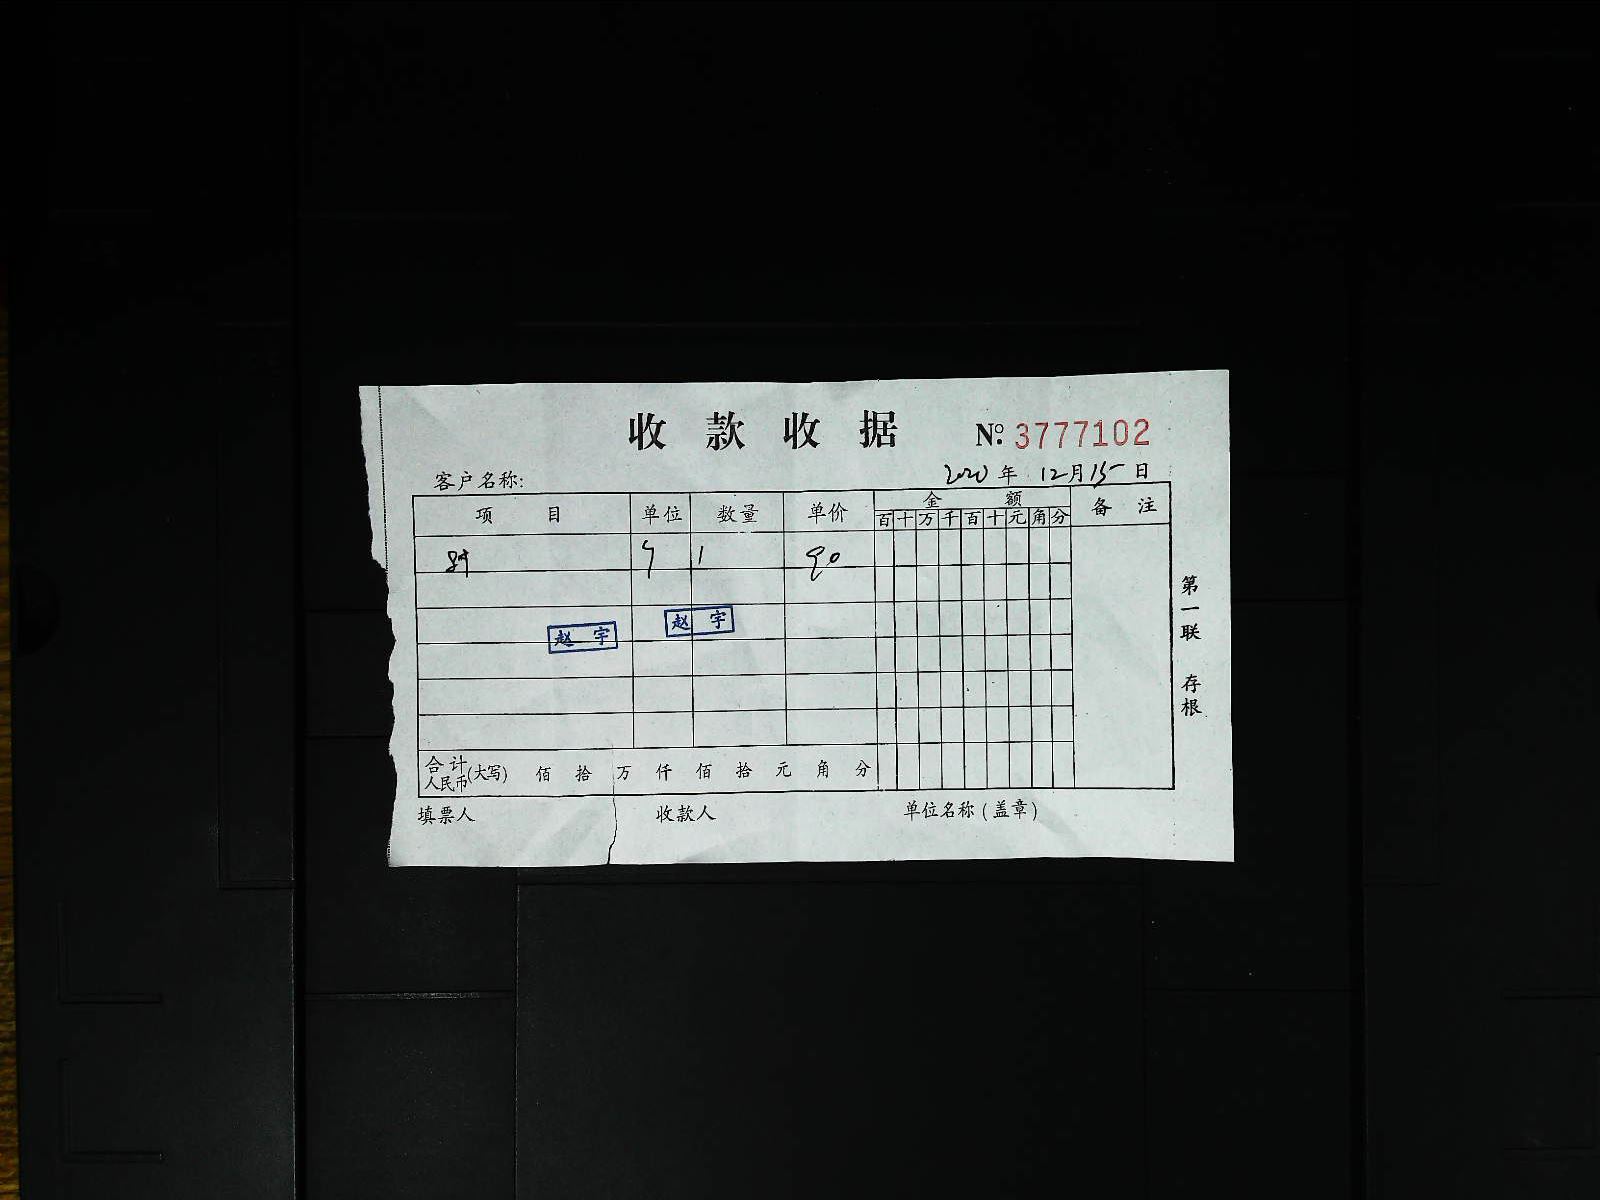 收款收据 No: 3777102
客户名称: 2020年 12月15日
项目 单位 数量 单价 金额 备注
百 十 万 千 百 十 元 角 分
1 90
赵宇 赵宇
合计人民币(大写) 佰 拾 万 仟 佰 拾 元 角 分
填票人 收款人 单位名称(盖章)
第一联 存根